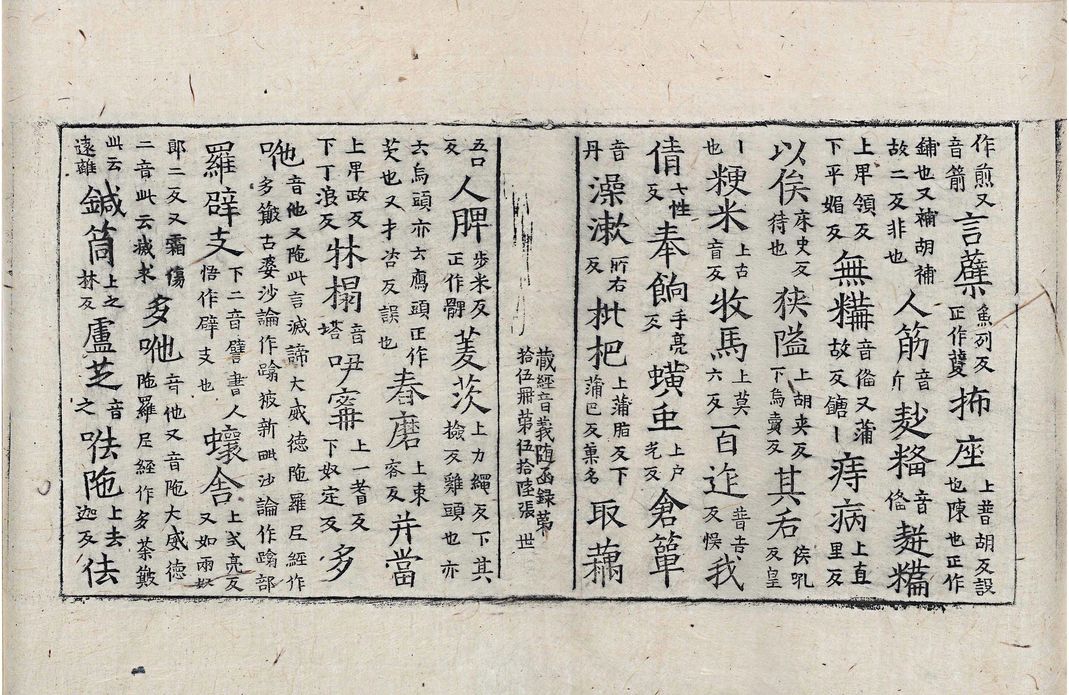 作煎又音箭言蘖魚列反正作櫱抪座上普胡反設也陳也正作
鋪也又補胡補故二反非也人筋音斤麨糌音俻麨糒
上早領反下平媚反無糒音俻又蒲故反餹丨痔病上直里反
以俟床史反待也狭隘上胡夹反下烏賣反其后侯吼反皇
丨也粳米上古盲反牧馬上莫六反百迕普吉反悮我
倩七性反奉餉手亮反蟥虫上户光反倉簞
音丹澡漱所右反枇杷上蒲脂反下蒲巴反菓名取藕
藏經音義随函録第
拾伍册第伍拾陸張 世
五口反人髀步米反正作髀菱茨上力繩反下其撿反雞頭也亦
六烏頭亦六鴈頭正作芡也又才咨反誤也舂磨上束容反并當
上早政反下丁浪反牀榻音塔吚寗上一耆反下奴定反多
吔音他又陁此言滅諦大威德陁羅尼經作多䉬古婆沙論作踰䟦新毗沙論作蹹部
羅辟支下二音譬書人悟作辟支也蠰舍上式亮反又如雨奴
郎二反又霜傷二音此云滅求多吔音他又音陁大威德陁羅尼經作多荼䉬
此云遠離鍼筒上之林反盧芝音之呿陁上去迦反佉